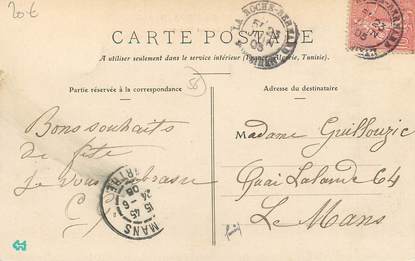 20€
CARTE POSTALE
A utiliser seulement dans le service intérieur (France, Algérie, Tunisie).
Partie réservée à la correspondance
Adresse du destinataire
Bons souhaits
de fête
Je vous embrasse
Madame Guillouzic
Quai Lalande 64
Le Mans
LA ROCHE-BERNARD
MANS
SARTHE
15 45
24 -6
08